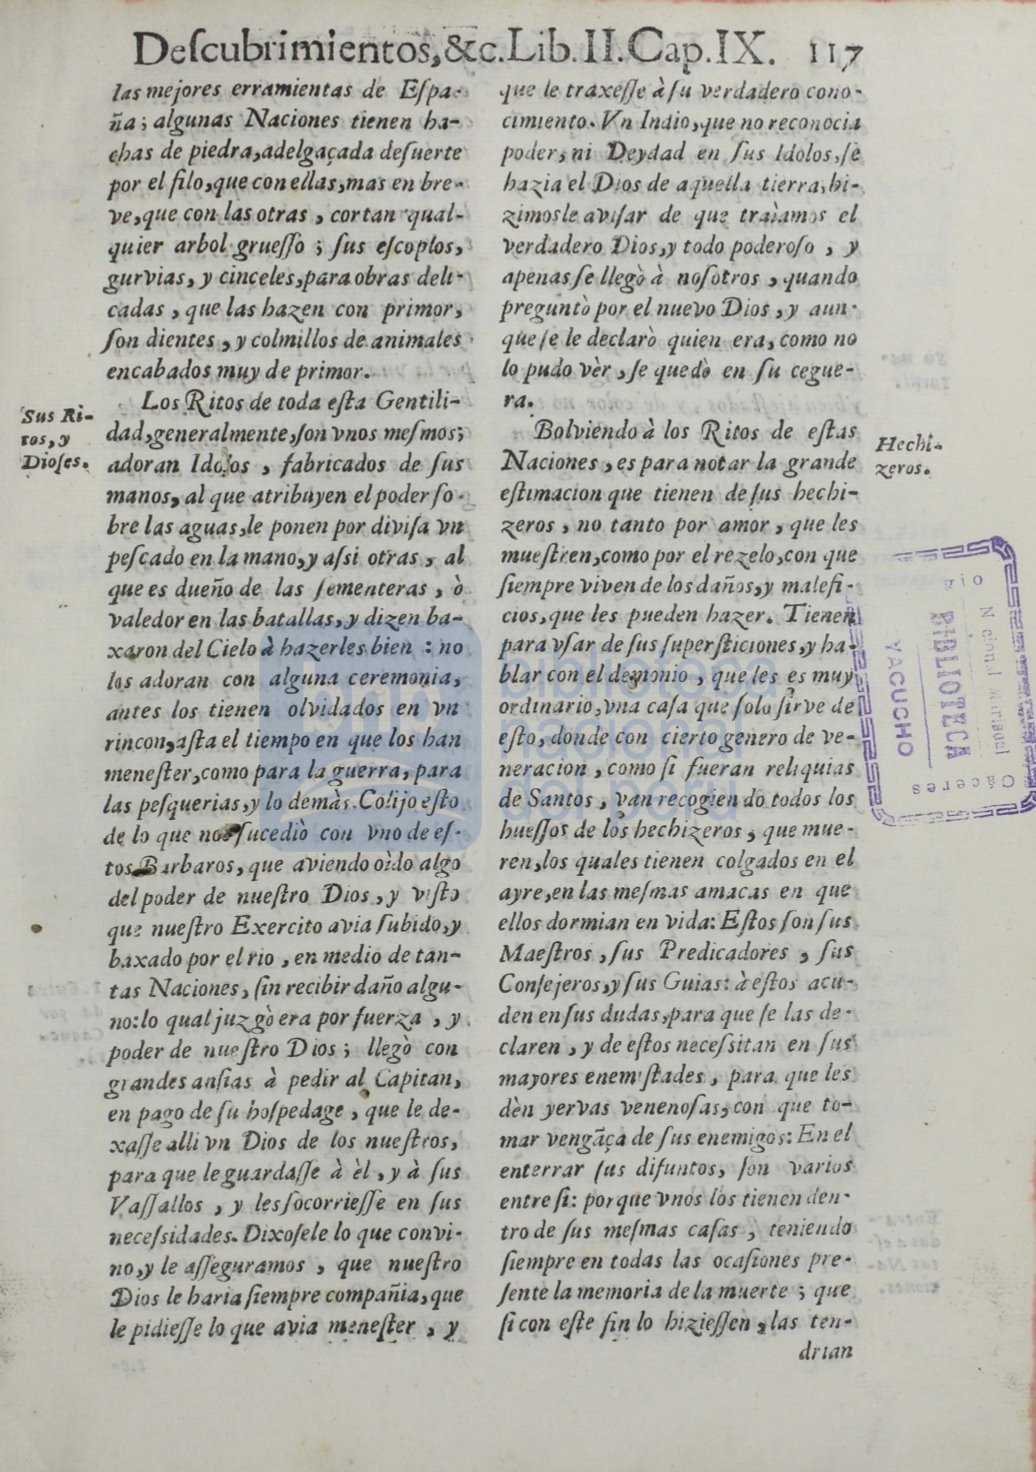 Deſcubrimientos, &c. Lib. II. Cap. IX. 117
las mejores erramientas de Eſpa-
ña; algunas Naciones tienen ha-
chas de piedra, adelgaçada deſuerte
por el filo, que con ellas, mas en bre-
ve, que con las otras, cortan qual-
quier arbol grueſſo; ſus eſcoplos,
gurvias, y cinceles, para obras deli-
cadas, que las hazen con primor,
ſon dientes, y colmillos de animales
encabados muy de primor.
Sus Ri-
tos, y
Dioſes.
Los Ritos de toda eſta Gentili-
dad, generalmente, ſon vnos meſmos;
adoran Idolos, fabricados de ſus
manos, al que atribuyen el poder ſo-
bre las aguas, le ponen por diviſa vn
peſcado en la mano, y aſsi otras, al
que es dueño de las ſementeras, ò
valedor en las batallas, y dizen ba-
xaron del Cielo à hazerles bien: no
los adoran con alguna ceremonia,
antes los tienen olvidados en vn
rincon, aſta el tiempo en que los han
meneſter, como para la guerra, para
las peſquerias, y lo demàs. Colijo eſto
de lo que nos ſucediò con vno de eſ-
tos Barbaros, que aviendo oìdo algo
del poder de nueſtro Dios, y viſto
que nueſtro Exercito avia ſubido, y
baxado por el rio, en medio de tan-
tas Naciones, ſin recibir daño algu-
no: lo qual juzgò era por fuerza, y
poder de nueſtro Dios; llegò con
grandes anſias à pedir al Capitan,
en pago de ſu hoſpedage, que le de-
xaſſe alli vn Dios de los nueſtros,
para que le guardaſſe à èl, y à ſus
Vaſſallos, y les ſocorrieſſe en ſus
neceſsidades. Dixoſele lo que convi-
no, y le aſſeguramos, que nueſtro
Dios le haria ſiempre compañia, que
le pidieſſe lo que avia meneſter, y
que le traxeſſe à ſu verdadero cono-
cimiento. Vn Indio, que no reconocia
poder, ni Deydad en ſus Idolos, ſe
hazia el Dios de aquella tierra, hi-
zimosle aviſar de que traìamos el
verdadero Dios, y todo poderoſo, y
apenas ſe llegò à noſotros, quando
preguntò por el nuevo Dios, y aun-
que ſe le declarò quien era, como no
lo pudo vèr, ſe quedò en ſu cegue-
ra.
Hechi-
zeros.
Bolviendo à los Ritos de eſtas
Naciones, es para notar la grande
eſtimacion que tienen de ſus hechi-
zeros, no tanto por amor, que les
mueſtren, como por el rezelo, con que
ſiempre viven de los daños, y malefi-
cios, que les pueden hazer. Tienen
para vſar de ſus ſuperſticiones, y ha-
blar con el demonio, que les es muy
ordinario, vna caſa que ſolo ſirve de
eſto, donde con cierto genero de ve-
neracion, como ſi fueran reliquias
de Santos, van recogiendo todos los
hueſſos de los hechizeros, que mue-
ren, los quales tienen colgados en el
ayre, en las meſmas amacas en que
ellos dormian en vida: Eſtos ſon ſus
Maeſtros, ſus Predicadores, ſus
Conſejeros, y ſus Guias: à eſtos acu-
den en ſus dudas, para que ſe las de-
claren, y de eſtos neceſsitan en ſus
mayores enemiſtades, para que les
dèn yervas venenoſas, con que to-
mar vengãça de ſus enemigos: En el
enterrar ſus difuntos, ſon varios
entre ſi: porque vnos los tienen den-
tro de ſus meſmas caſas, teniendo
ſiempre en todas las ocaſiones pre-
ſente la memoria de la muerte; que
ſi con eſte fin lo hizieſſen, las ten-
drian
BIBLIOTECA
YACUCHO
Cáceres
biblioteca
nacional
del perú